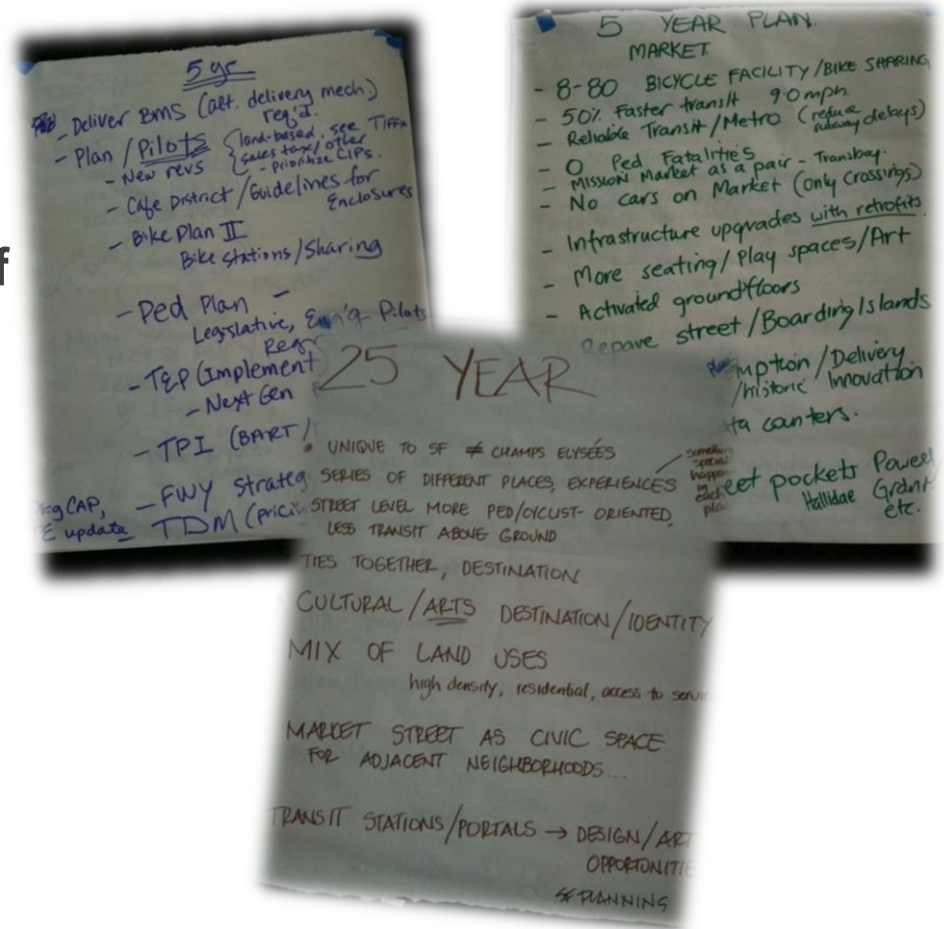 f
5 yr
- Deliver BMS (alt. delivery mech.)
req'd.
- Plan / Pilots
land-based, see TIFFs
- New revs
sales tax / other
- Prioritize CIPs.
- Cafe District / Guidelines for
Enclosures
- Bike Plan II
Bike Stations / Sharing
- Ped Plan -
Legislative, Eng'g. Pilots
- TEP (Implement
- Next Gen
- TPI (BART /
- FWY Strateg
CAP,
E update
TDM (prici
5 YEAR PLAN
MARKET
- 8-80 BICYCLE FACILITY / BIKE SHARING
- 50% Faster transit 9.0 mph.
- Reliable Transit / Metro (reduce
subway delays)
- 0 Ped. Fatalities
- Mission Market as a pair - Transbay.
- No cars on Market (only Crossings)
- Infrastructure upgrades with retrofits
- More seating / Play spaces / Art
- Activated groundfloors
Repave street / Boarding Islands
mption / Delivery
/ historic Innovation
ta counters.
eet pockets Powell
Hallidae Grant
etc.
25 YEAR
• UNIQUE TO SF ≠ CHAMPS ELYSÉES
SERIES OF DIFFERENT PLACES, EXPERIENCES
something
special
happen
in
each
place
STREET LEVEL MORE PED/CYCLIST-ORIENTED,
LESS TRANSIT ABOVE GROUND
TIES TOGETHER; DESTINATION
CULTURAL / ARTS DESTINATION / IDENTITY
MIX OF LAND USES
high density, residential, access to servic
MARKET STREET AS CIVIC SPACE
FOR ADJACENT NEIGHBORHOODS...
TRANSIT STATIONS/PORTALS → DESIGN/ART
OPPORTUNITIE
SF PLANNING